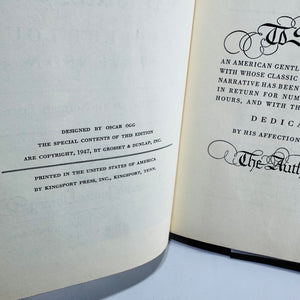 DESIGNED BY OSCAR OGG
THE SPECIAL CONTENTS OF THIS EDITION
ARE COPYRIGHT, 1947, BY GROSSET & DUNLAP, INC.
PRINTED IN THE UNITED STATES OF AMERICA
BY KINGSPORT PRESS, INC., KINGSPORT, TENN.
To
AN AMERICAN GENTL
WITH WHOSE CLASSIC
NARRATIVE HAS BEEN
IN RETURN FOR NUM
HOURS, AND WITH TH
DEDICA
BY HIS AFFECTION
The Auth